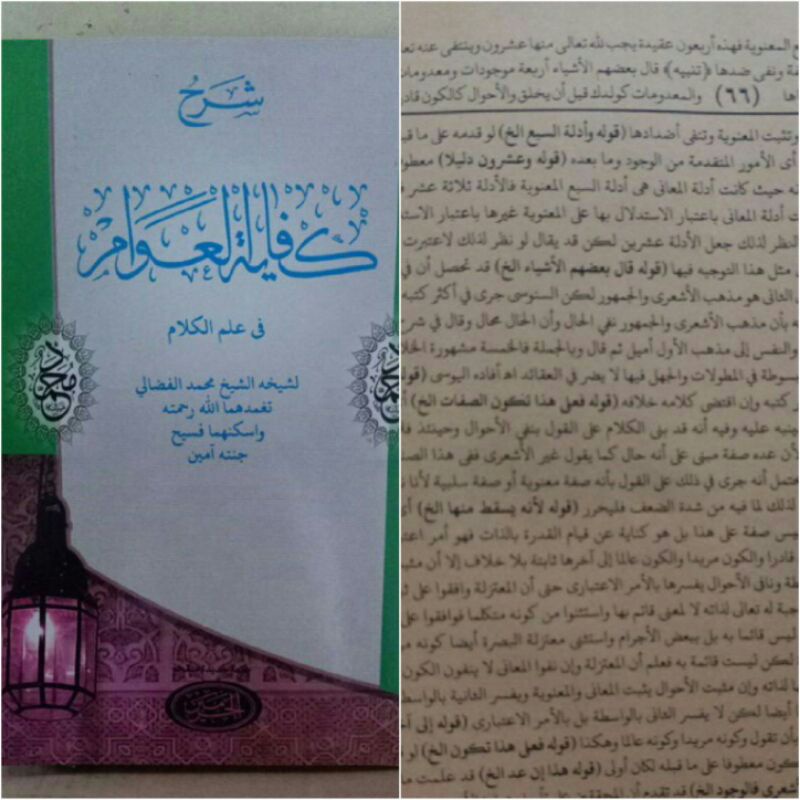 شرح
كفاية العوام
فى علم الكلام
لشيخه الشيخ محمد الفضالي
تغمدهما الله رحمته
واسكنهما فسيح
جنته آمين
الحرمين
ع المعنوية فهذه أربعون عقيدة يجب لله تعالى منها عشرون وينتفى عنه تعا
ة ونفى ضدها (تنبيه) قال بعضهم الأشياء أربعة موجودات ومعدومات
ها (٦٦) والمعدومات كولدك قبل أن يخلق والأحوال كالكون قادر
وتثبت المعنوية وتنفى أضدادها (قوله وأدلة السبع الخ) لو قدمه على ما قبـ
أى الأمور المتقدمة من الوجود وما بعده (قوله وعشرون دليلا) معطو
نه حيث كانت أدلة المعانى هى أدلة السبع المعنوية فالأدلة ثلاثة عشر
ت أدلة المعانى باعتبار الاستدلال بها على المعنوية غيرها باعتبار الاست
النظر لذلك جعل الأدلة عشرين لكن قد يقال لو نظر لذلك لاعتبرت
مثل هذا التوجيه فيها (قوله قال بعضهم الأشياء الخ) قد تحصل أن فى
الثانى هو مذهب الأشعرى والجمهور لكن السنوسى جرى في أكثر كتبه
ه بأن مذهب الأشعرى والجمهور نفي الحال وأن الحال محال وقال في شر
والنفس إلى مذهب الأول أميل ثم قال وبالجملة فالخمسة مشهورة الخلا
بسوطة في المطولات والجهل فيها لا يضر في العقائد اهـ أفاده اليوسى (قو
ر كتبه وإن اقتضى كلامه خلافه (قوله فعلى هذا تكون الصفات الخ)
ينبه عليه وفيه أنه قد بنى الكلام على القول بنفي الأحوال وحينئذ فا
لأن عده صفة مبنى على أنه حال كما يقول غير الأشعرى ففى هذا الصـ
تحتمل أنه جرى في ذلك على القول بأنه صفة معنوية أو صفة سلبية لأنا
لذلك لما فيه من شدة الضعف فليحرر (قوله لأنه يسقط منها الخ) أى
يس صفة على هذا بل هو كناية عن قيام القدرة بالذات فهو أمر اعتـ
قادرا والكون مريدا والكون عالما إلى آخرها ثابتة بلا خلاف إلا أن مثبـ
طة ونافى الأحوال يفسرها بالأمر الاعتبارى حتى أن المعتزلة وافقوا على
جبة له تعالى لذاته لا لمعنى قائم بها واستثنوا من كونه متكلما فوافقوا على
ليس قائما به بل ببعض الأجرام واستثنى معتزلة البصرة أيضا كونه
لكن ليست قائمة به فعلم أن المعتزلة وإن نفوا المعانى لا ينفون الكون
ها لذاته وإن مثبت الأحوال يثبت المعانى والمعنوية ويفسر الثانية بالواسطـ
أيضا لكن لا يفسر الثانى بالواسطة بل بالأمر الاعتبارى (قوله إلى آ
بأن تقول وكونه مريدا وكونه عالما وهكذا (قوله فعلى هذا تكون الخ) لو
كون معطوفا على ما قبله لكان أولى (قوله هذا إن عد الخ) قد علمت
أشعرى فالوجود الخ) قد تقدم أن المحققين